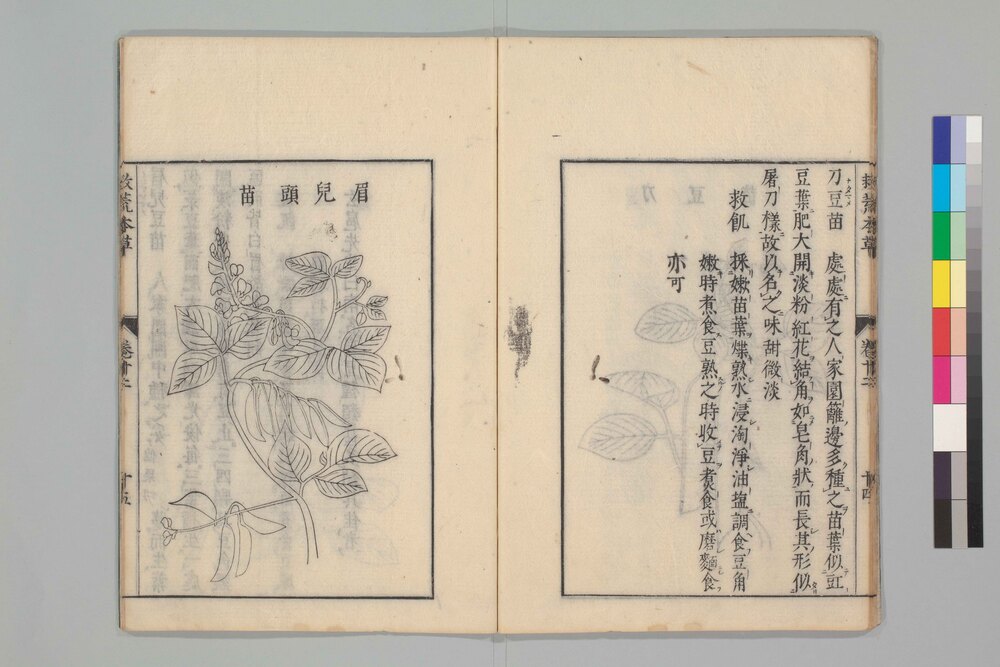 救荒本草
卷廿二
十四
刀豆苗 處處有之人家園籬邊多種之苗葉似豇
豆葉肥大開淡粉紅花結角如皂角狀而長其形似
屠刀樣故以名之味甜微淡
救飢 採嫩苗葉煠熟水浸淘淨油塩調食豆角
嫩時煮食豆熟之時收豆煮食或磨麵食
亦可
眉兒頭苗
救荒本草
卷廿二
十五